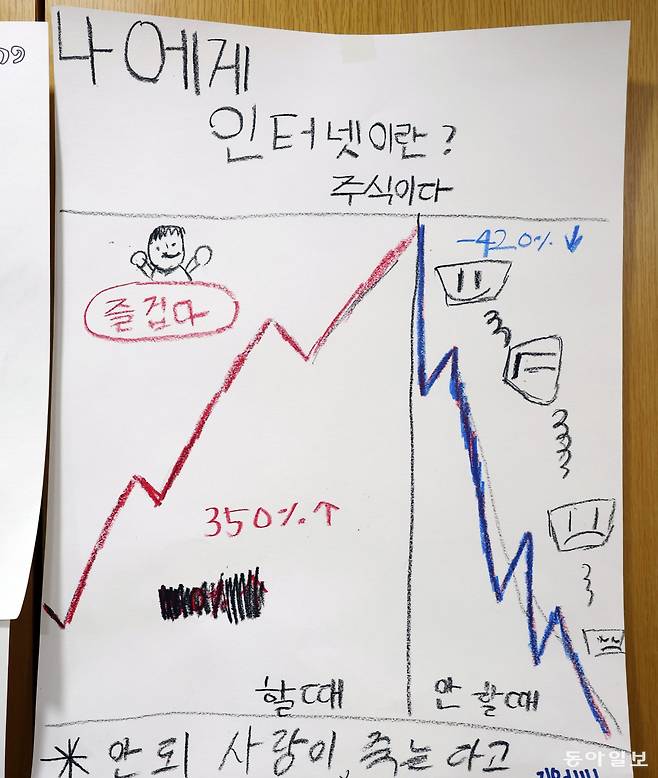 나에게
인터넷이란?
주식이다
즐겁다
-420%↓
350%↑
할때
안 할때
* 안 되 사랑이, 죽는다고
동아일보